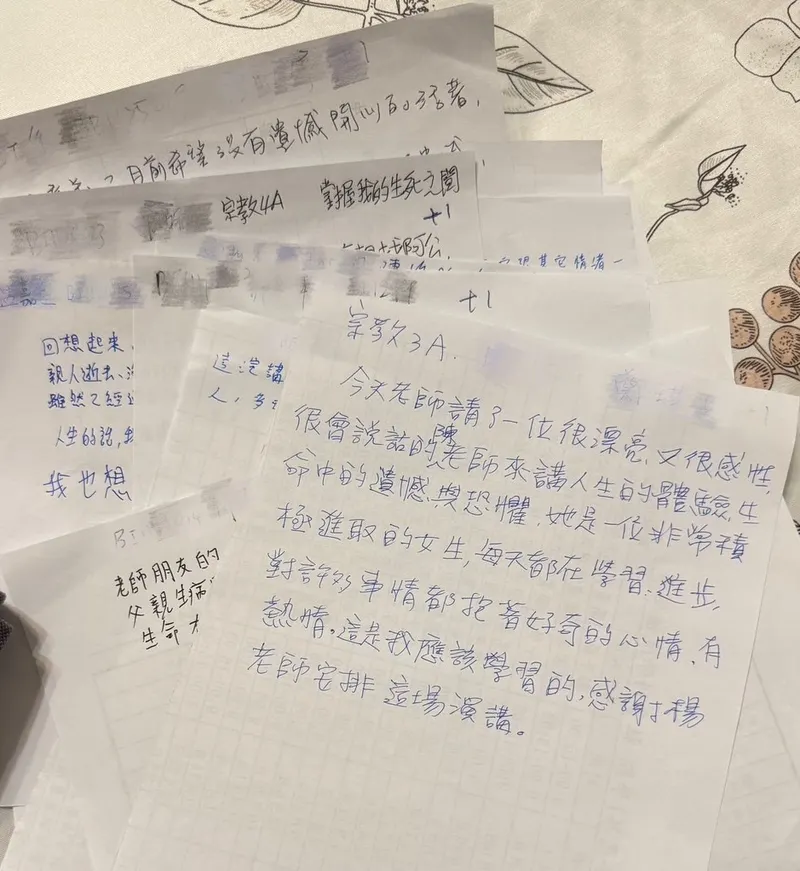 目前希望沒有遺憾開心的活著,
宗教4A 掌握我的生死之間
+1
阿公,
其它情緒一
+1
回想起來,
親人逝去、
雖然已經
人生的話,我
我也想
這堂講
人,多
老師朋友的
父親生病
生命才
宗教3A.
今天老師請了一位很漂亮、又很感性,
很會說話的陳老師來講人生的體驗,生
命中的遺憾與恐懼,她是一位非常積
極進取的女生,每天都在學習、進步,
對許多事情都抱著好奇的心情、有
熱情。這是我應該學習的,感謝楊
老師安排這場演講。